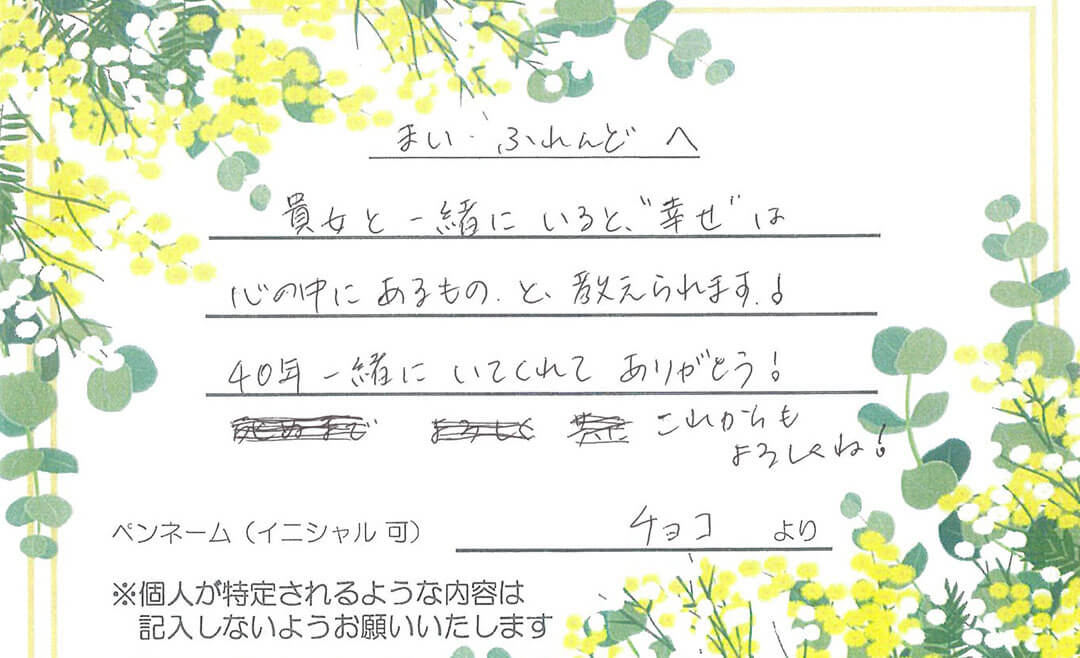 まい・ふれんど へ
貴女と一緒にいると、"幸せ"は
心の中にあるもの.と、教えられます.!
40年一緒にいてくれて ありがとう!
これからも
よろしくね!
ペンネーム(イニシャル 可) チョコ より
※個人が特定されるような内容は
記入しないようお願いいたします